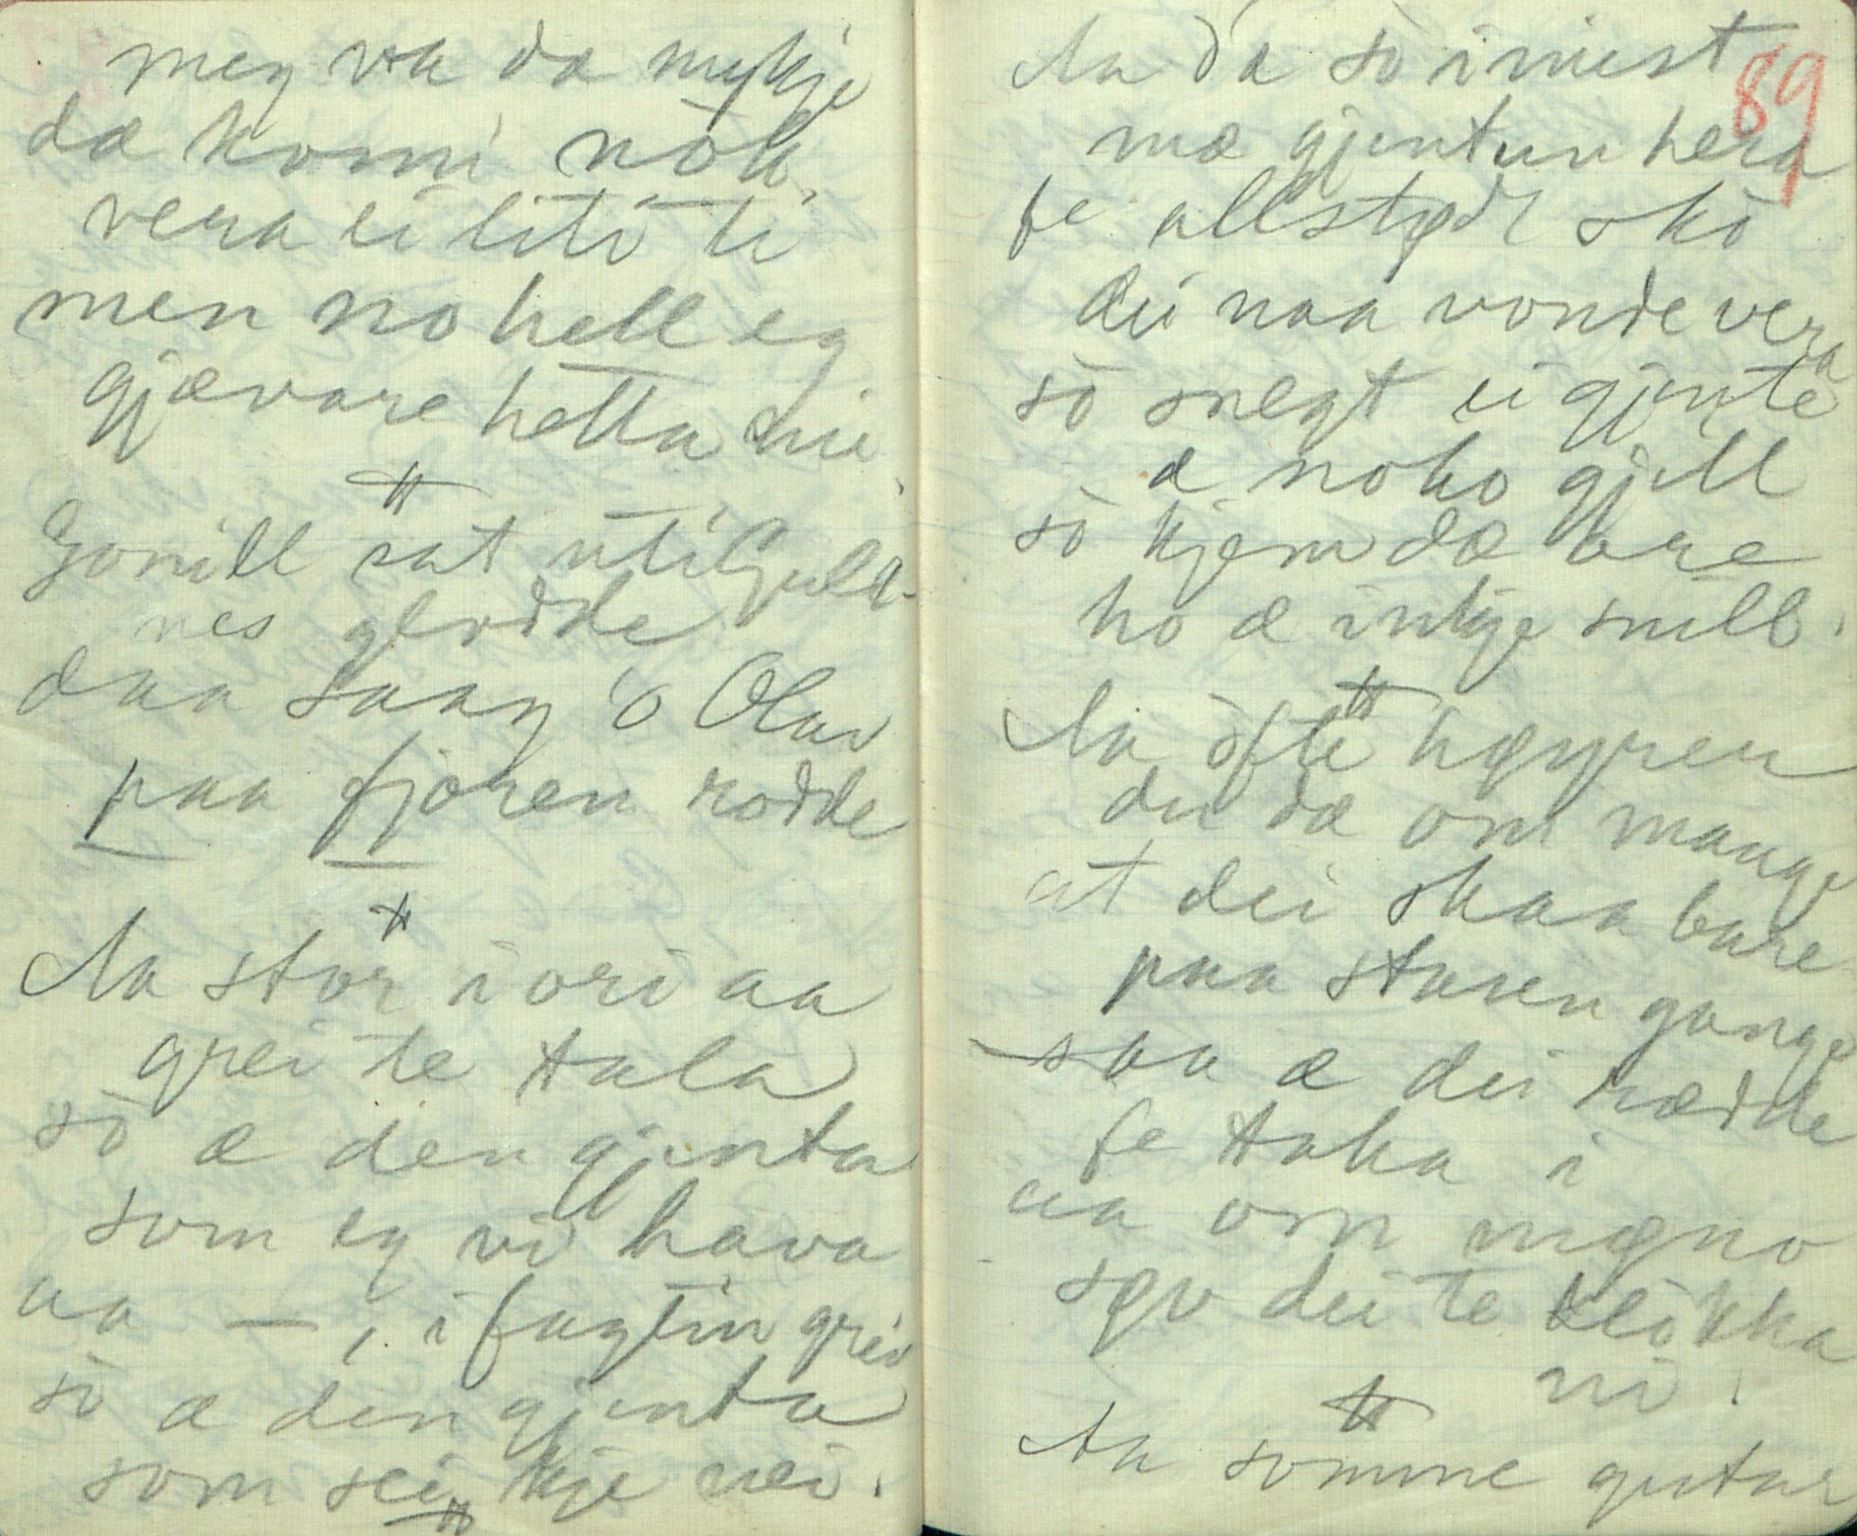 meg va dæ mykje
dæ komi nòk,
vera ei liti ti
men no hell eg
gjævare hella ni
#
Gonill sat uti Guld-
nes glodde
daa saag ò Olav
paa fjoren rodde
#
Aa stor i ori aa
grei te tala
sò æ den gjenta
som eg vi hava
aa — i fagtin grei
sò æ den gjenta
som sei kje nei.
#
89
Aa dæ sò imist
mæ gjentun hera
fe allstødt skò
dei naa vonde vera
sò snegt ei gjente
æ noko gjill
sò kjem dæ bre
ho æ inkje snill.
#
Aa òfte høyrer
du dæ om mange
at dei skaa bare
paa staren gange
saa æ dei rædde
fe taka i
aa om møno
søv dei te klòkka
ni.
#
Aa somme gutar